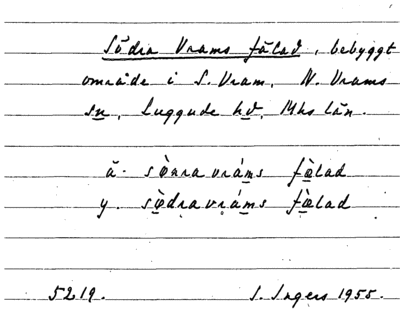 Södra Vrams fälad, bebyggt
område i S. Vram, N. Vrams
sn, Luggude hd, Mhs län.
ä. sœ̀nravráms fœ̀lad
y. sœ̀dravráms fœ̀lad
5219. I. Ingers 1955.